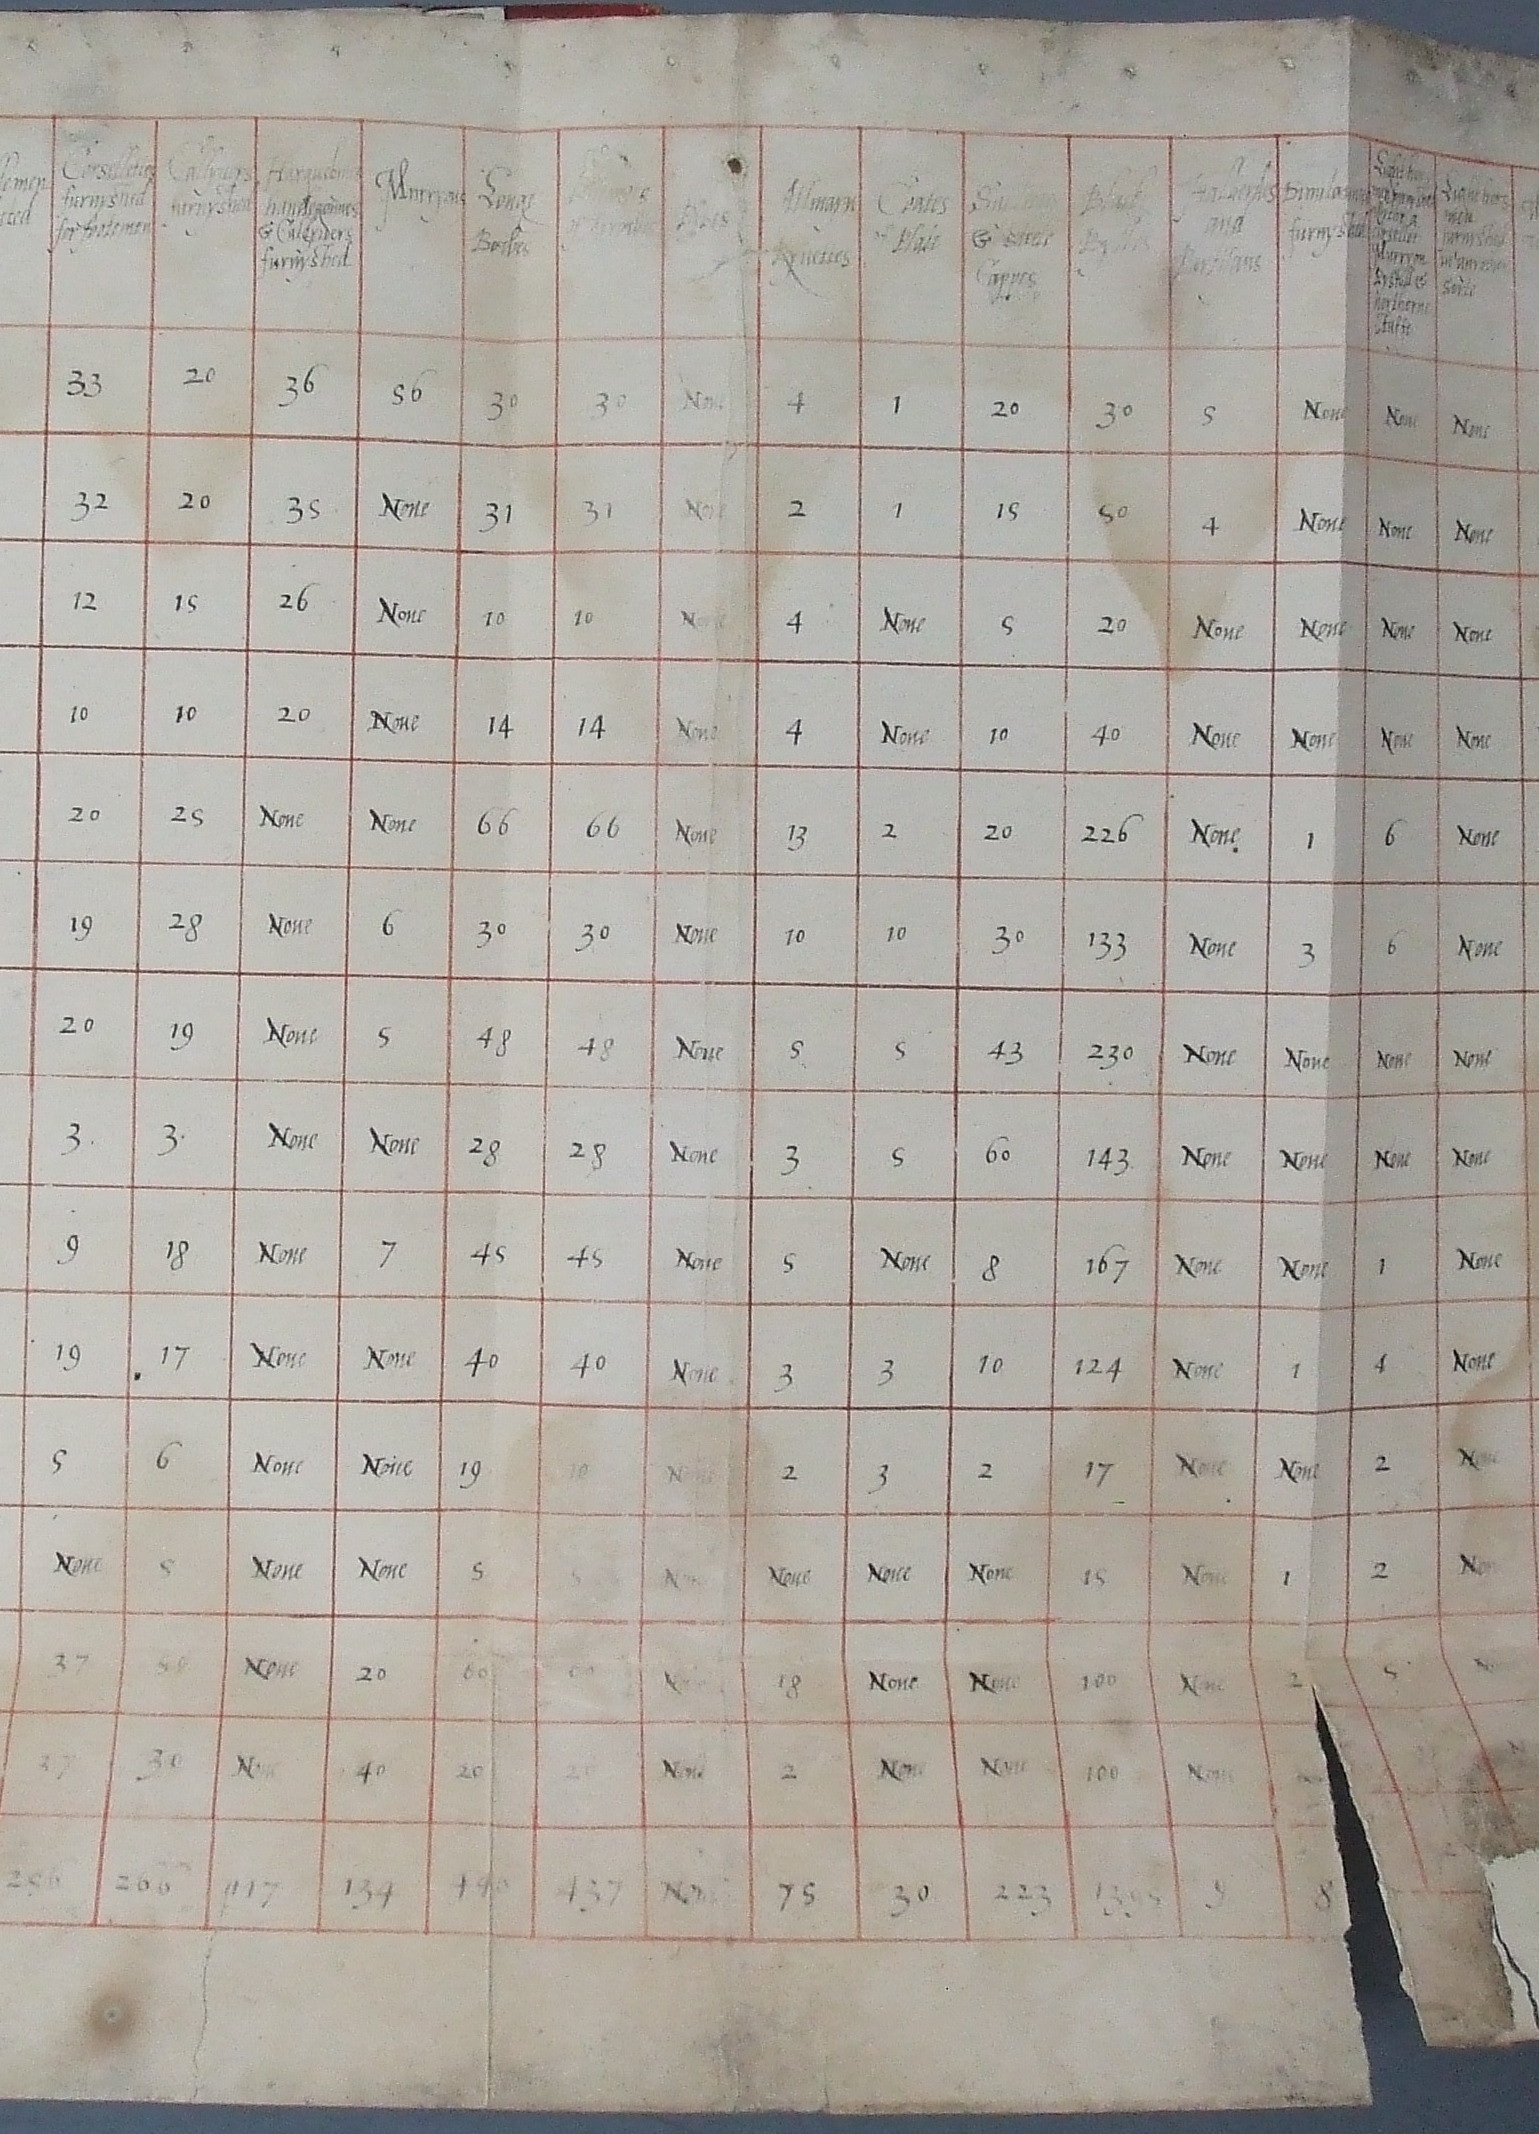 Corselletes furnyshed for footemen
Callivers furnyshed
Harquebuts handegonnes & Callivers furnyshed
Murryons
Longe Bowes
Almayn Ryvettes
Coates of Plate
& steele Cappes
Blacke Bylles
Halberdes and Partisans
furnyshed
Murryon
northerne Staffe
Light hors men furnyshed
33 20 36 56 30 30 None 4 1 20 30 5 None None None
32 20 35 None 31 31 None 2 1 15 50 4 None None None
12 15 26 None 10 10 None 4 None 5 20 None None None None
10 10 20 None 14 14 None 4 None 10 40 None None None None
20 25 None None 66 66 None 13 2 20 226 None 1 6 None
19 28 None 6 30 30 None 10 10 30 133 None 3 6 None
20 19 None 5 48 48 None 5 5 43 230 None None None None
3 3 None None 28 28 None 3 5 60 143 None None None None
9 18 None 7 45 45 None 5 None 8 167 None None 1 None
19 17 None None 40 40 None 3 3 10 124 None 1 4 None
5 6 None None 19 None 2 3 2 17 None None 2 None
None 5 None None 5 5 None None None None 15 None 1 2 None
37 50 None 20 60 60 None 18 None None 100 None 2 5
37 30 None 40 20 20 None 2 None None 100 None
256 266 117 134 437 None 75 30 223 1395 9 8